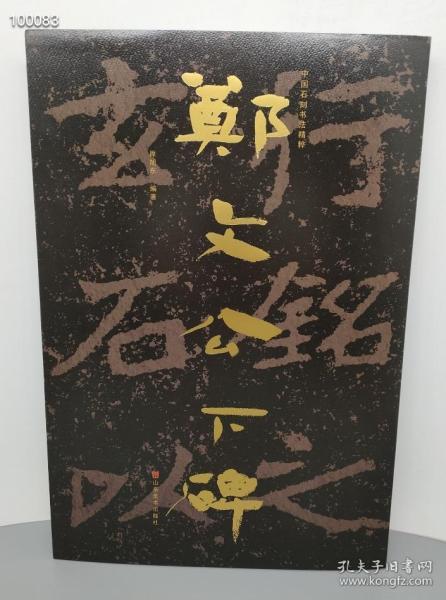 100083
中国石刻书法精粹
鄭文公下碑
编著
山东美术出版社
行銘之
玄石以
孔夫子旧书网
www.kongfz.com